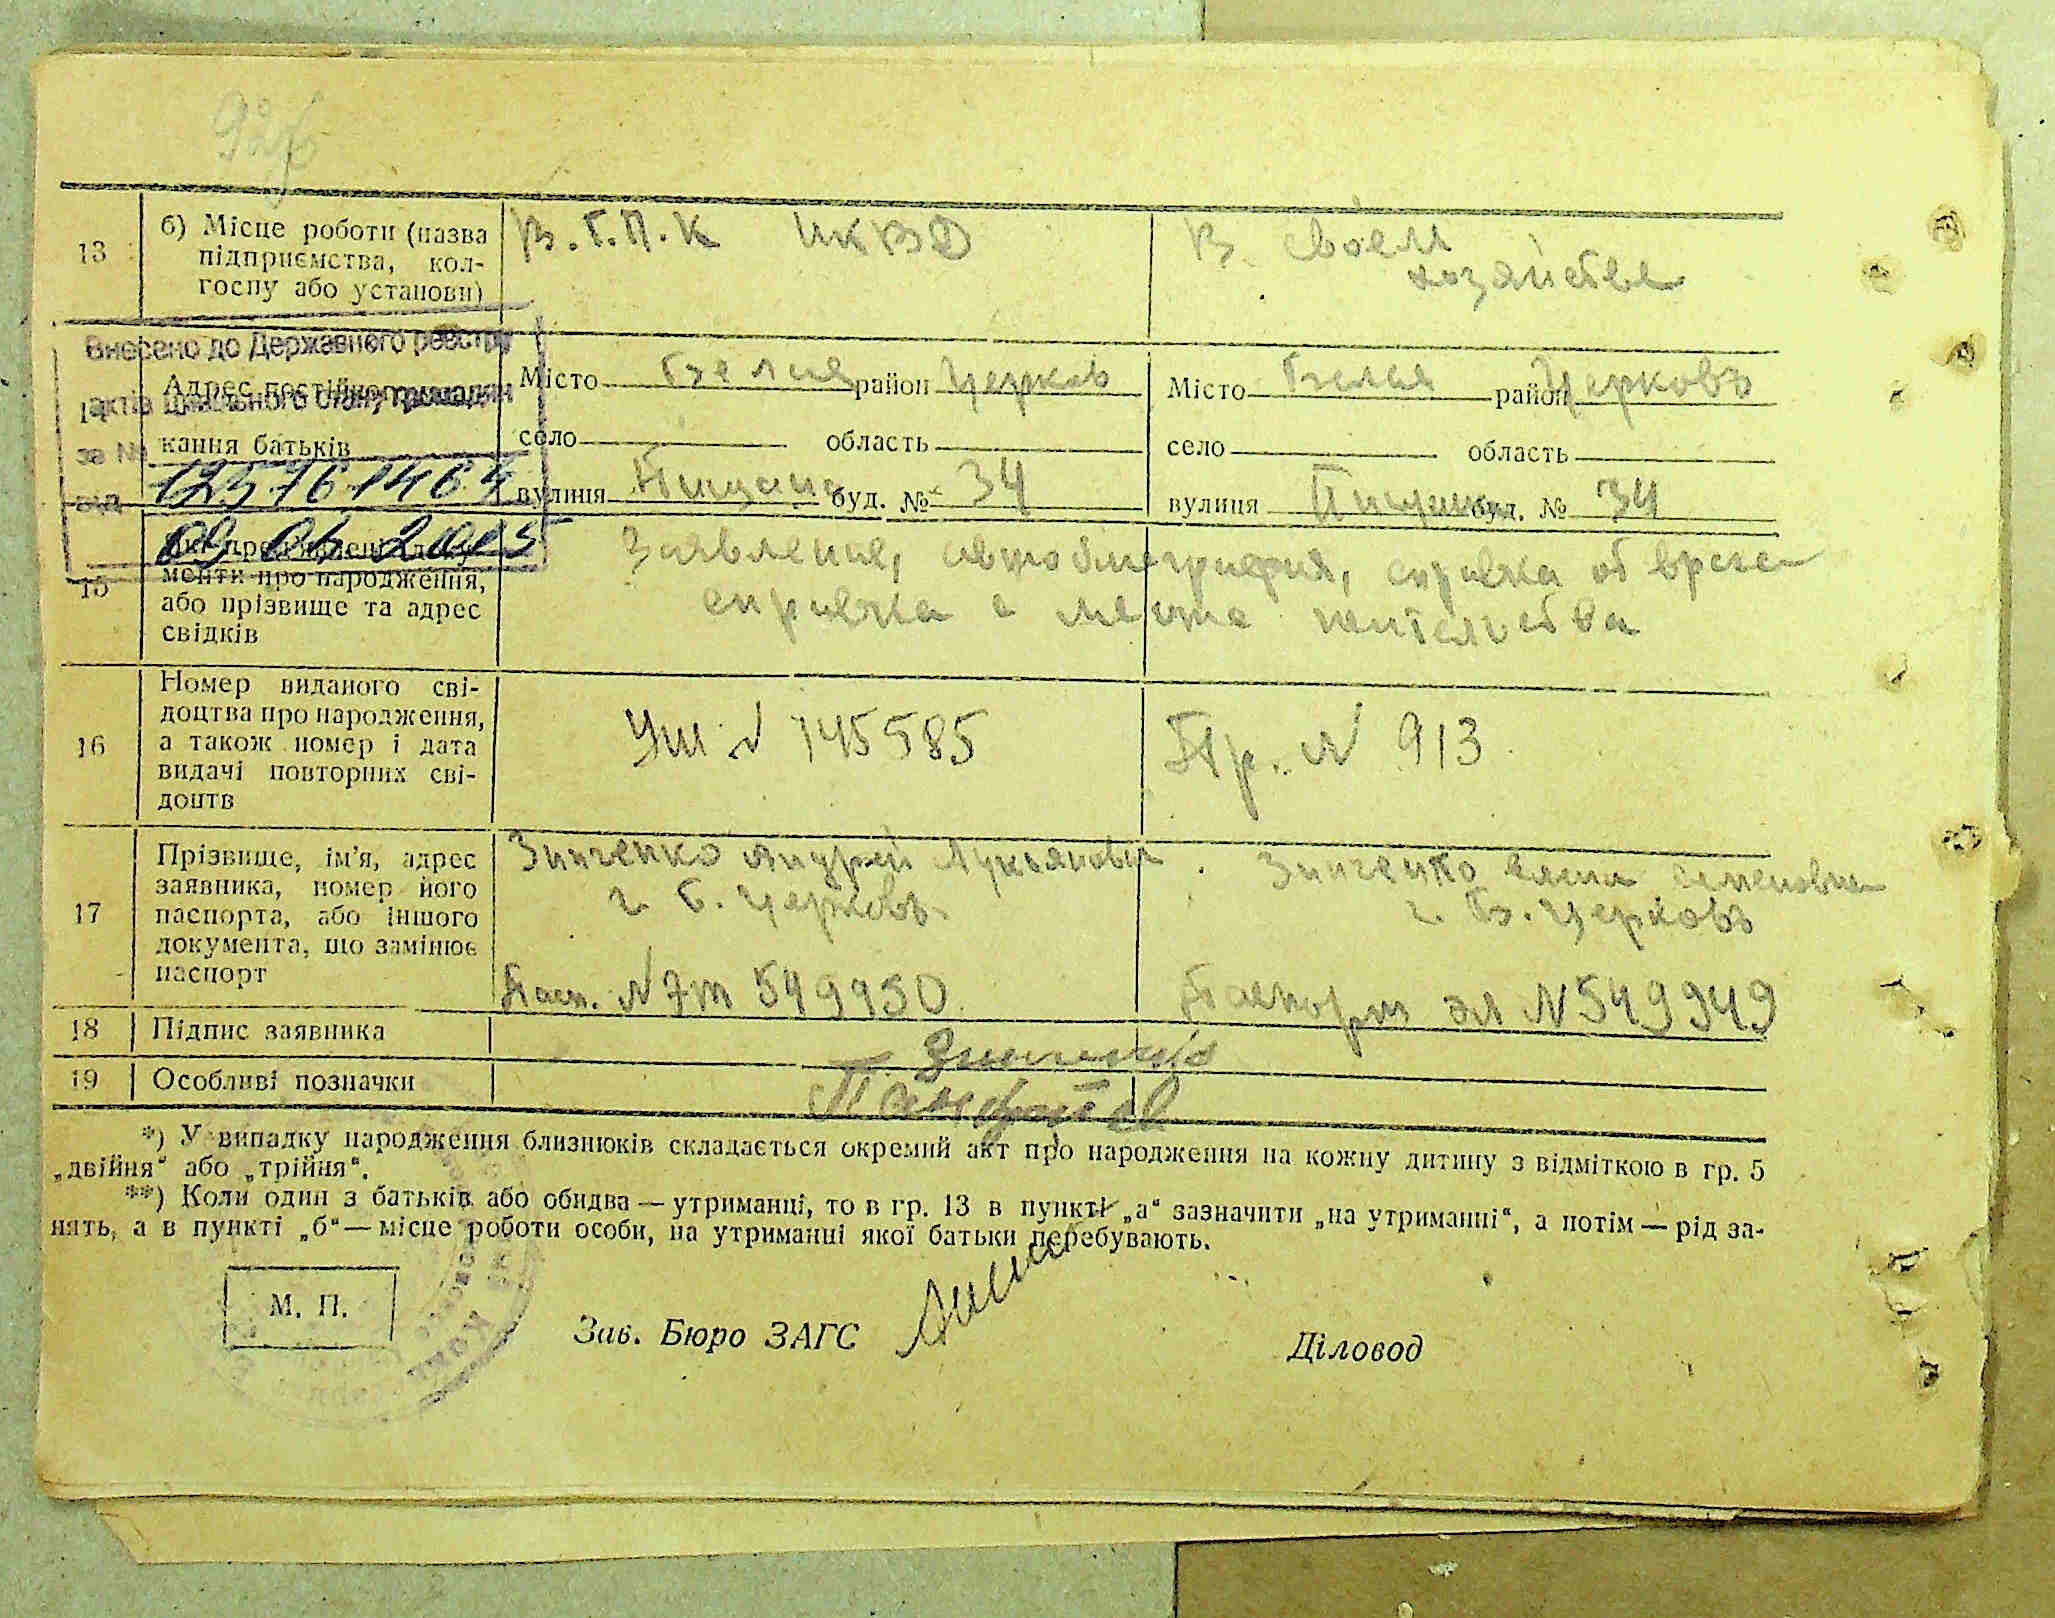 13
б) Місце роботи (назва
підприємства, кол-
госпу або установи)
В. Г. П. К НКВД
В своем
хозяйстве
Внесено до Державного реєстру
актів цивільного стану громадян
за №
1257614
від
2015
Адрес постійного
кання батьків
Місто Белая район Церковь
село область
вулиця буд. № 34
Місто Белая район Церковь
село область
вулиця буд. № 34
15
менти про народження,
або прізвище та адрес
свідків
Заявление, автобиография, справка от врача
справка с места жительства
16
Номер виданого сві-
доцтва про народження,
а також номер і дата
видачі повторних сві-
доцтв
№ 145585
Пр. № 913
17
Прізвище, ім’я, адрес
заявника, номер його
паспорта, або іншого
документа, що замінює
паспорт
Зинченко Андрей Лукьянович
г. Б. Церковь
Пасп. № 549950
Зинченко Семеновна
г. Б. Церковь
Паспорт № 549949
18
Підпис заявника
Зинченко
19
Особливі позначки
*) У випадку народження близнюків складається окремий акт про народження на кожну дитину з відміткою в гр. 5
„двійня“ або „трійня“.
**) Коли один з батьків або обидва — утриманці, то в гр. 13 в пункті „а“ зазначити „на утриманні“, а потім — рід за-
нять, а в пункті „б“ — місце роботи особи, на утриманні якої батьки перебувають.
М. П.
Зав. Бюро ЗАГС
Діловод